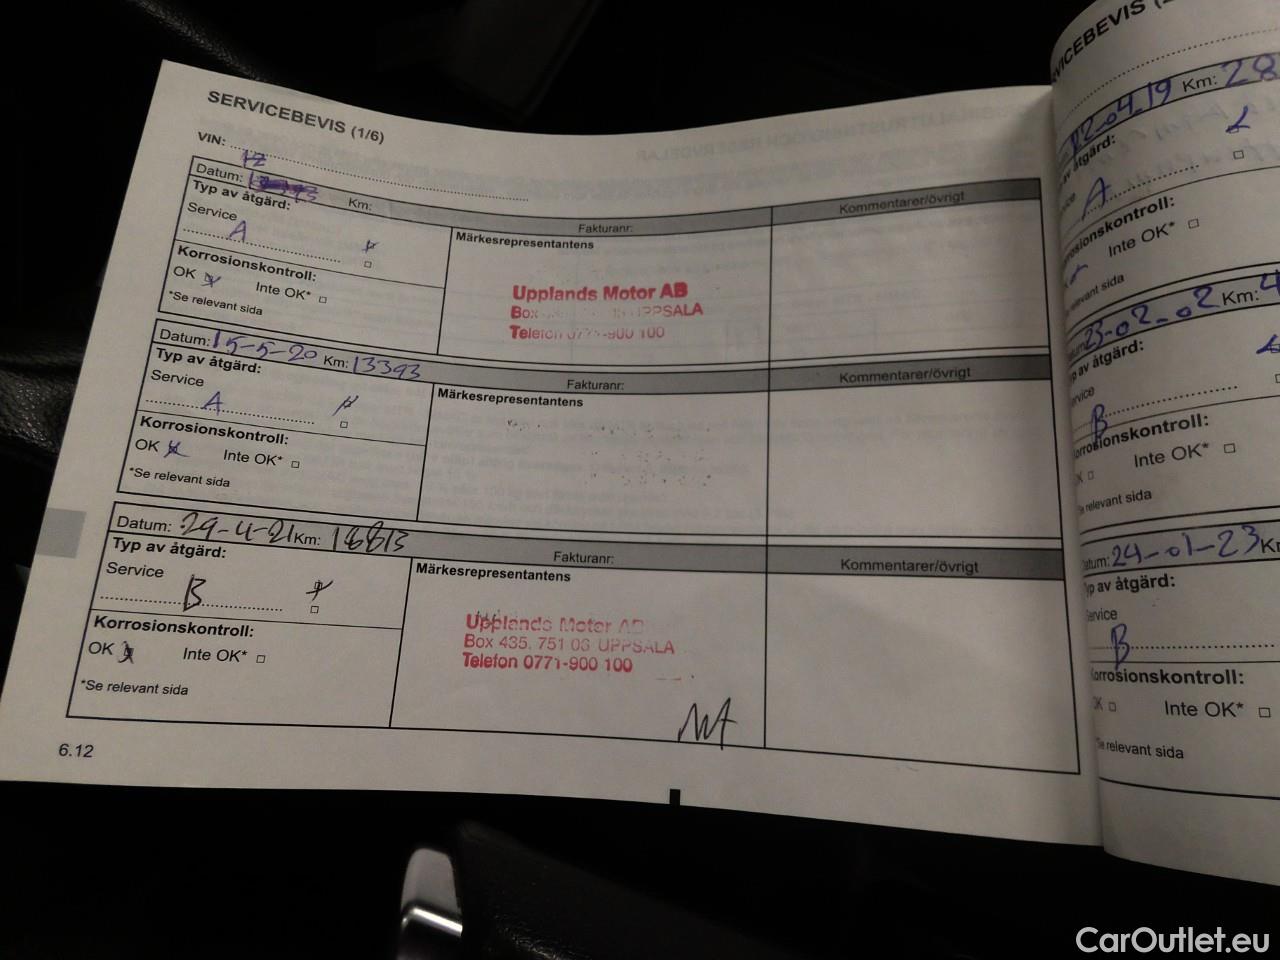 SERVICEBEVIS (1/6)
VIN:
Datum: Km:
Typ av åtgärd:
Service
A
Korrosionskontroll:
OK Inte OK*
*Se relevant sida
Fakturanr:
Märkesrepresentantens
Upplands Motor AB
Box UPPSALA
Telefon 0771-900 100
Kommentarer/övrigt
Datum: 15-5-20 Km: 13393
Typ av åtgärd:
Service
A
Korrosionskontroll:
OK Inte OK*
*Se relevant sida
Fakturanr:
Märkesrepresentantens
Kommentarer/övrigt
Datum: 29-4-21 Km: 16813
Typ av åtgärd:
Service
B
Korrosionskontroll:
OK Inte OK*
*Se relevant sida
Fakturanr:
Märkesrepresentantens
Upplands Motor AB
Box 435, 751 06 UPPSALA
Telefon 0771-900 100
Kommentarer/övrigt
6.12
VICEBEVIS
Km: 28
av åtgärd:
A
Inte OK*
relevant sida
23-02-02 Km: 4
åtgärd:
B
Inte OK*
Se relevant sida
24-01-23
yp av åtgärd:
ervice
B
orrosionskontroll:
OK Inte OK*
*Se relevant sida
CarOutlet.eu